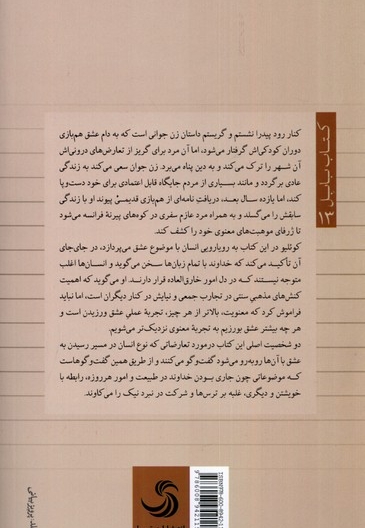 کنار رود پیدرا نشستم و گریستم داستان زن جوانی است که به دام عشق هم‌بازی
دوران کودکی‌اش گرفتار می‌شود، اما آن مرد برای گریز از تعارض‌های درونی‌اش
آن شهر را ترک می‌کند و به دین پناه می‌برد. زن جوان سعی می‌کند به زندگی
عادی برگردد و مانند بسیاری از مردم جایگاه قابل اعتمادی برای خود دست‌وپا
کند، اما یازده سال بعد، دریافت نامه‌ای از هم‌بازی قدیمی‌اش پیوند او با زندگی
سابقش را می‌گسلد و به همراه مرد عازم سفری در کوه‌های پیرنهٔ فرانسه می‌شود
تا ژرفای موهبت‌های معنوی خود را کشف کند.
کوئلیو در این کتاب به رویارویی انسان با موضوع عشق می‌پردازد، در جای‌جای
آن تأکید می‌کند که خداوند با تمام زبان‌ها سخن می‌گوید و انسان‌ها اغلب
متوجه نیستند که در دل امور خارق‌العاده قرار دارند. او می‌گوید که اهمیت
کنش‌های مذهبی سنتی در تجارب جمعی و نیایش در کنار دیگران است، اما نباید
فراموش کرد که معنویت، بالاتر از هر چیز، تجربهٔ عملی عشق ورزیدن است و
هر چه بیشتر عشق بورزیم به تجربهٔ معنوی نزدیک‌تر می‌شویم.
دو شخصیت اصلی این کتاب درمورد تعارضاتی که نوع انسان در مسیر رسیدن به
عشق با آن‌ها روبه‌رو می‌شود گفت‌وگو می‌کنند و از طریق همین گفت‌وگوهاست
که موضوعاتی چون جاری بودن خداوند در طبیعت و امور هرروزه، رابطه با
خویشتن و دیگری، غلبه بر ترس‌ها و شرکت در نبرد نیک را می‌کاوند.
کتاب بابل